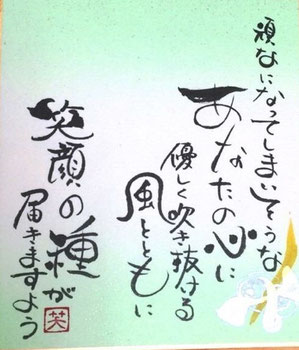 頑なになってしまいそうな
あなたの心に
優しく吹き抜ける
風とともに
笑顔の種が
届きますよう
笑